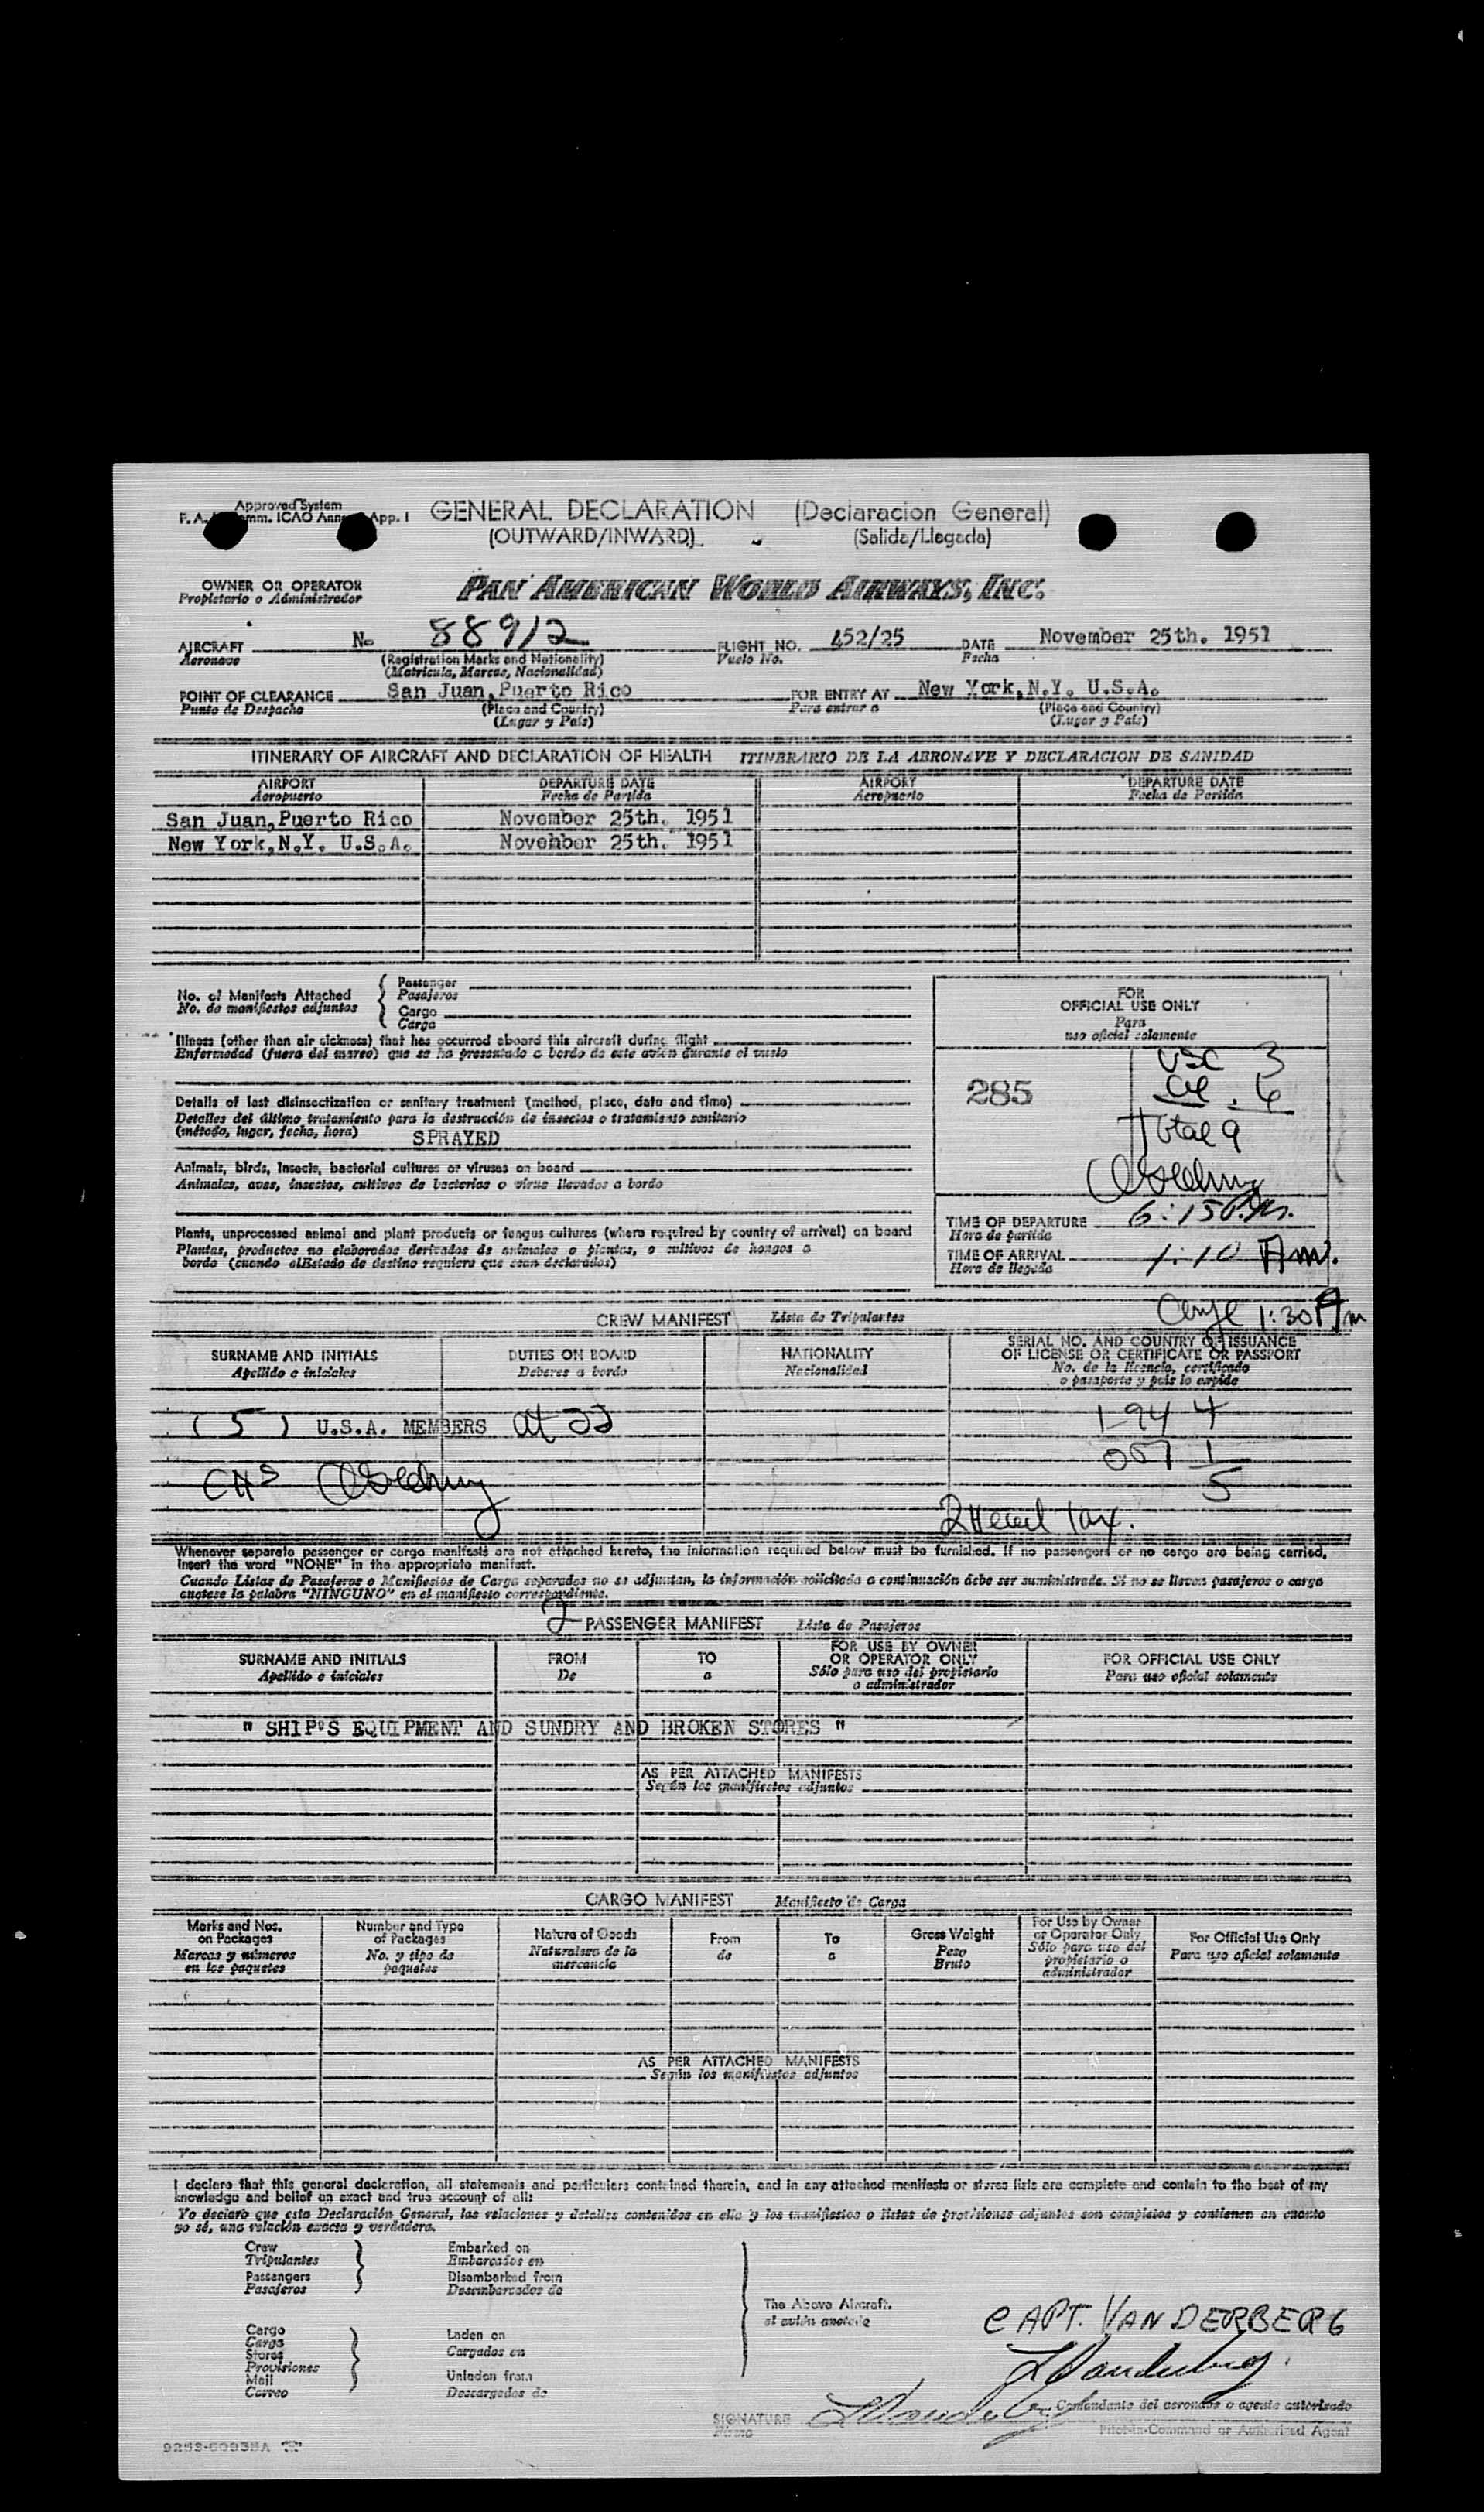 Approved System
GENERAL DECLARATION (Declaracion General)
(OUTWARD/INWARD) (Salida/Llegada)
OWNER OR OPERATOR
Propietario o Administrador
PAN AMERICAN WORLD AIRWAYS, INC.
AIRCRAFT No 88912 FLIGHT NO. 452/25 DATE November 25th. 1951
Aeronave (Registration Marks and Nationality) Vuelo No. Fecha
(Matricula, Marcas, Nacionalidad)
POINT OF CLEARANCE San Juan, Puerto Rico FOR ENTRY AT New York, N.Y. U.S.A.
Punto de Despacho (Place and Country) Para entrar a (Place and Country)
(Lugar y País) (Lugar y País)
ITINERARY OF AIRCRAFT AND DECLARATION OF HEALTH ITINERARIO DE LA AERONAVE Y DECLARACION DE SANIDAD
AIRPORT DEPARTURE DATE AIRPORT DEPARTURE DATE
Aeropuerto Fecha de Partida Aeropuerto Fecha de Partida
San Juan, Puerto Rico November 25th. 1951
New York, N.Y. U.S.A. Novehber 25th. 1951
No. of Manifests Attached
No. de manifiestos adjuntos
Passenger
Pasajeros
Cargo
Carga
FOR
OFFICIAL USE ONLY
Para
uso oficial solamente
Illness (other than air sickness) that has occurred aboard this aircraft during flight
Enfermedad (fuera del mareo) que se ha presentado a bordo de este avión durante el vuelo
285
USC 3
6
Total 9
Details of last disinsectization or sanitary treatment (method, place, date and time)
Detalles del último tratamiento para la destrucción de insectos o tratamiento sanitario
(método, lugar, fecha, hora) SPRAYED
Animals, birds, insects, bacterial cultures or viruses on board
Animales, aves, insectos, cultivos de bacterias o virus llevados a bordo
TIME OF DEPARTURE 6:15 P.M.
Hora de partida
TIME OF ARRIVAL 1:10 Am.
Hora de llegada
Plants, unprocessed animal and plant products or fungus cultures (where required by country of arrival) on board
Plantas, productos no elaborados derivados de animales o plantas, o cultivos de hongos a
bordo (cuando elEstado de destino requiera que sean declarados)
1:30 Am
CREW MANIFEST Lista de Tripulantes
SURNAME AND INITIALS DUTIES ON BOARD NATIONALITY SERIAL NO. AND COUNTRY OF ISSUANCE
OF LICENSE OR CERTIFICATE OR PASSPORT
Apellido e iniciales Deberes a bordo Nacionalidad No. de la licencia, certificado
o pasaporte y país lo expide
( 5 ) U.S.A. MEMBERS at 22 1-94 4
057 1
5
2 Head tax.
Whenever separate passenger or cargo manifests are not attached hereto, the information required below must be furnished. If no passengers or no cargo are being carried,
insert the word "NONE" in the appropriate manifest.
Cuando Listas de Pasajeros o Manifiestos de Carga separados no se adjuntan, la información solicitada a continuación debe ser suministrada. Si no se llevan pasajeros o carga
anotese la palabra "NINGUNO" en el manifiesto correspondiente.
2 PASSENGER MANIFEST Lista de Pasajeros
SURNAME AND INITIALS FROM TO FOR USE BY OWNER
OR OPERATOR ONLY FOR OFFICIAL USE ONLY
Apellido e iniciales De a Sólo para uso del propietario
o administrador Para uso oficial solamente
" SHIP'S EQUIPMENT AND SUNDRY AND BROKEN STORES "
AS PER ATTACHED MANIFESTS
Según los manifiestos adjuntos
CARGO MANIFEST Manifiesto de Carga
Marks and Nos.
on Packages
Marcas y números
en los paquetes
Number and Type
of Packages
No. y tipo de
paquetes
Nature of Goods
Naturaleza de la
mercancía
From
de
To
a
Gross Weight
Peso
Bruto
For Use by Owner
or Operator Only
Sólo para uso del
propietario o
administrador
For Official Use Only
Para uso oficial solamente
AS PER ATTACHED MANIFESTS
Según los manifiestos adjuntos
I declare that this general declaration, all statements and particulars contained therein, and in any attached manifests or stores lists are complete and contain to the best of my
knowledge and belief an exact and true account of all:
Yo declaro que esta Declaración General, las relaciones y detalles contenidos en ella y los manifiestos o listas de provisiones adjuntos son completos y contienen en cuanto
yo sé, una relación exacta y verdadera.
Crew
Tripulantes
Passengers
Pasajeros
Embarked on
Embarcados en
Disembarked from
Desembarcados de
Cargo
Carga
Stores
Provisiones
Mail
Correo
Laden on
Cargados en
Unladen from
Descargados de
The Above Aircraft.
el avión anotado
CAPT. VANDERBERG
Comandante del aeronave o agente autorizado
SIGNATURE
Firma
Pilot-in-Command or Authorized Agent